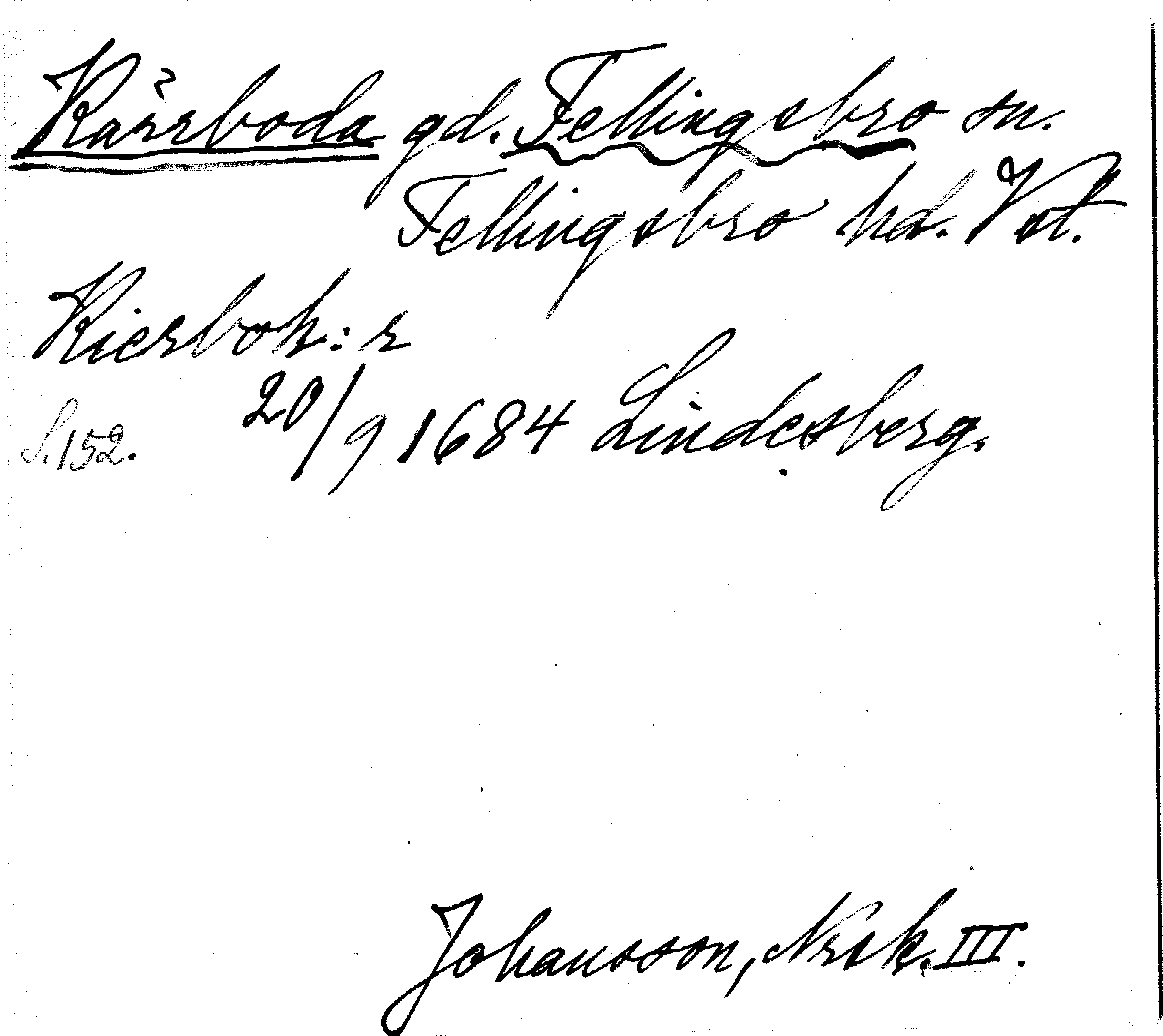 Kärrboda gd. Fellingsbro sn.
Fellingsbro hd. Vstl.
Kierboh: r
20/9 1684 Lindesberg.
S. 152.
Johansson, Nrsk. III.